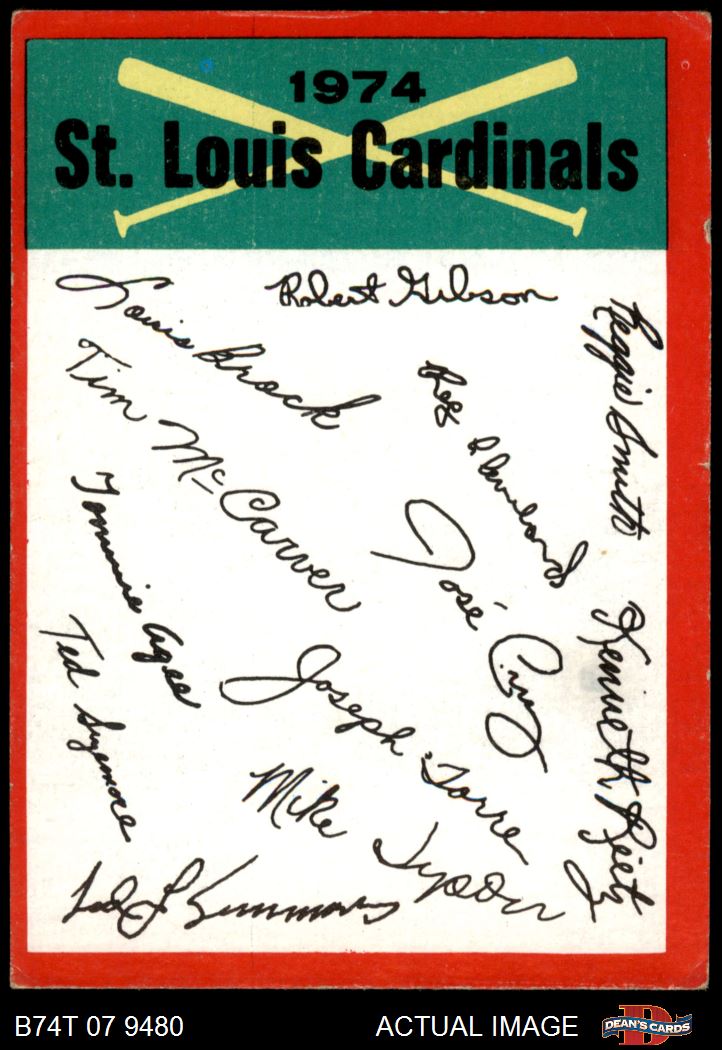 1974
St. Louis Cardinals
Robert Gibson
Louis Brock
Reggie Smith
Tim McCarver
Reg Cleveland
Tommie Agee
José Cruz
Ted Sizemore
Joseph Torre
Kenneth Reitz
Mike Tyson
Ted L Simmons
B74T 07 9480
ACTUAL IMAGE
D
DEAN'S CARDS